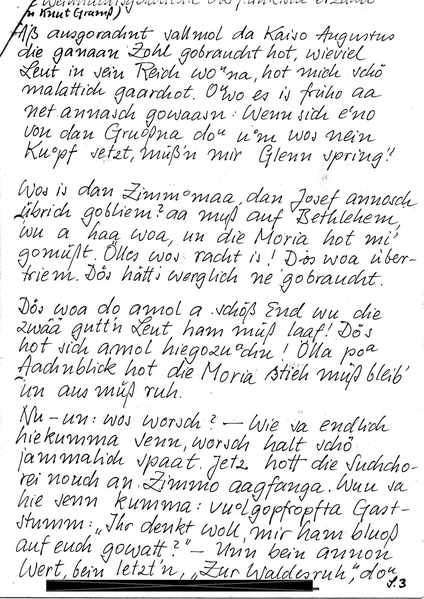 n Knut Gramß)
Aß ausgorachnt sallmol da Kaiso Augustus
die ganaan Zohl gebraucht hot, wieviel
Leut in sein Reich wo'na, hot mich schö
malattich gaarchot. O'wo es is früho aa
net annasch gowaasn: Wenn sich e'no
von dan Grueßna do u'm wos nein
Kuopf setzt, müß'n mir Glenn spring'!
Wos is dan Zimmomaa, dan Josef annosch
übrich gobliem? aa muß auf Bethlehem,
wu a haa woa, un die Moria hot mi'
gomüßt. Ölles wos racht is! Dos woa über-
triem. Dös hätt's werglich ne' gobraucht.
Dös woa do amol a schöß End wu die
zwää gutt'n Leut ham müß laaf! Dös
hot sich amol hiegozu
! Ölla poa
Aachnblick hot die Moria stieh müß bleib'
'un aus müß ruh.
Nu-un: wos worsch? - Wie sa endlich
hiekumma senn, worsch halt schö
jammalich spaat. Jetz hott die Suchcho-
rei nouch an Zimmo aagfanga. Wuu sa
hie senn kumma: vuolgopfropfta Gast-
stumm: "Ihr denkt woll, mir ham bluoß
auf euch gowatt?" - Unn bein annon
Wert, bein letzt'n, "Zur Waldesruh", do
S.3